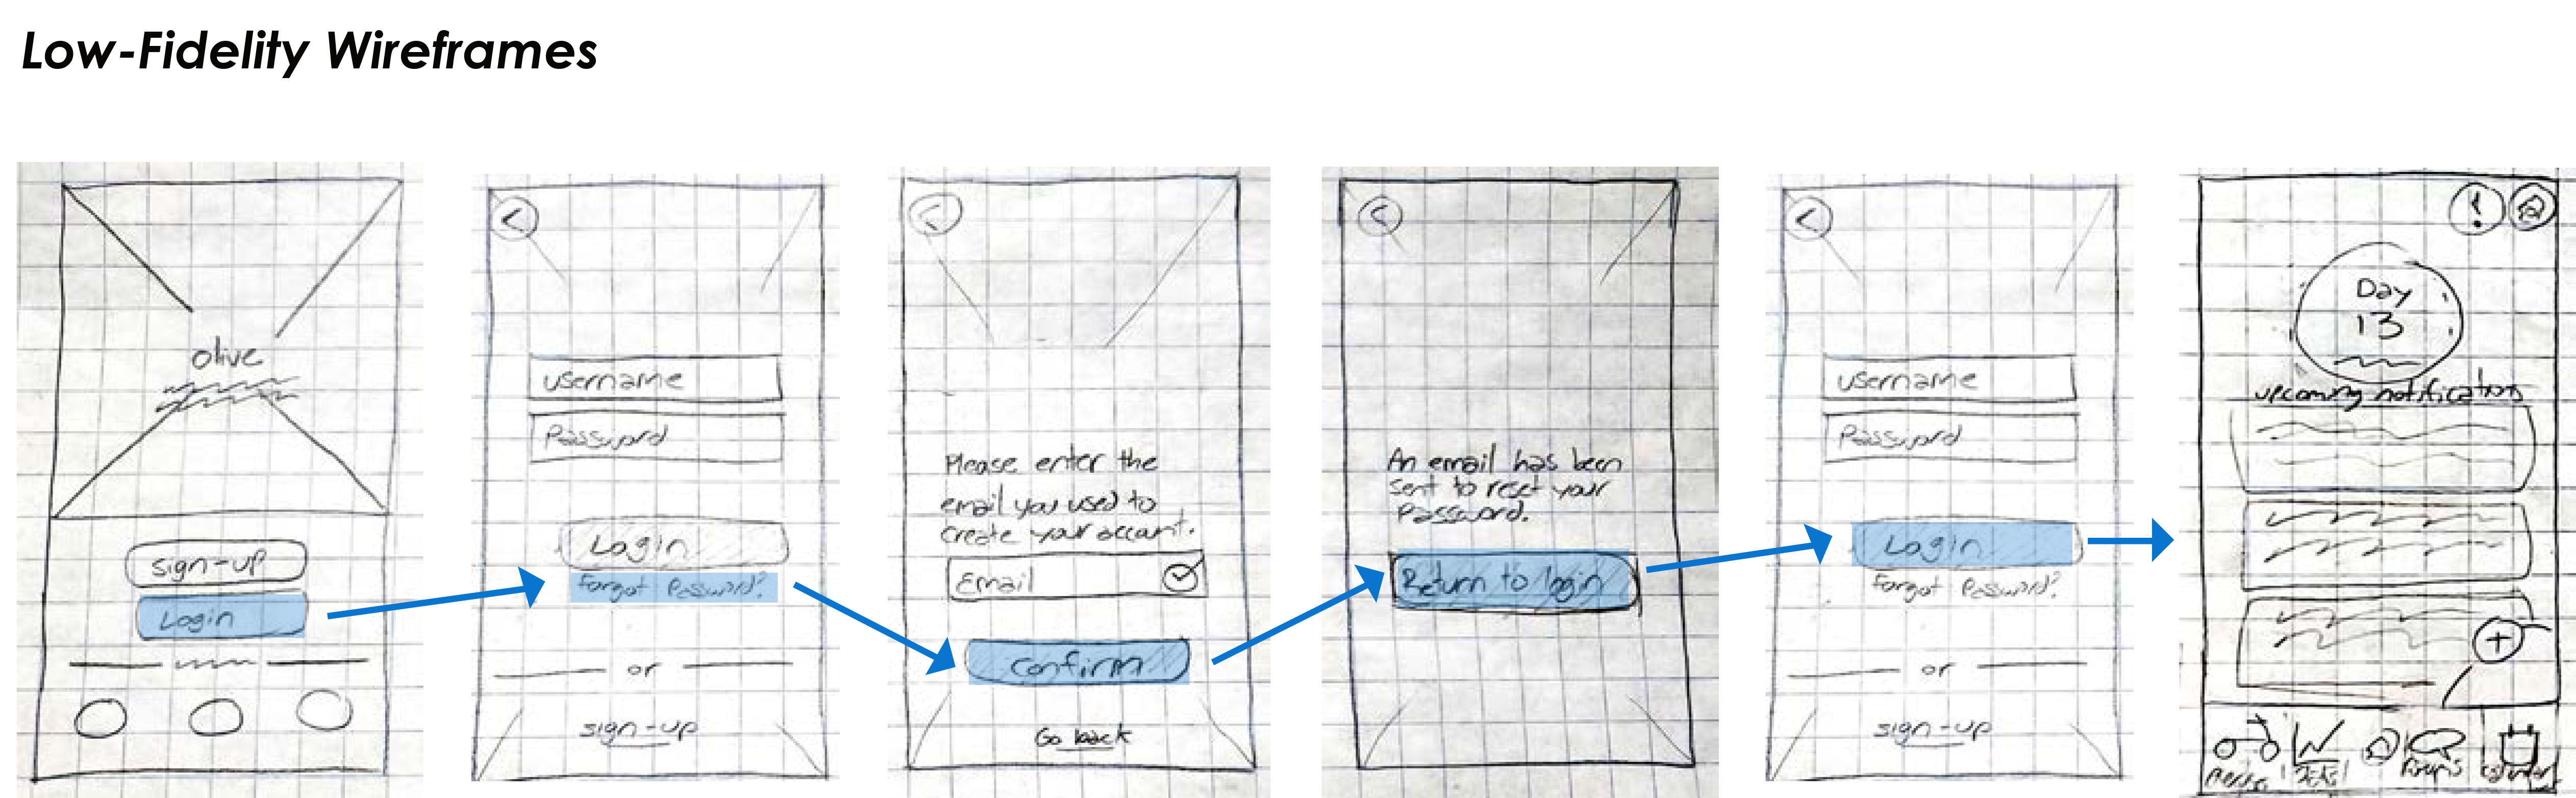 Low-Fidelity Wireframes
olive
sign-up
Login
username
Password
Login
Forgot Password?
or
sign-up
Please enter the
email you used to
create your account.
Email
Confirm
Go back
An email has been
sent to reset your
Password.
Return to login
username
Password
Login
Forgot Password?
or
sign-up
!
Day
13
upcoming notification
+
Forums